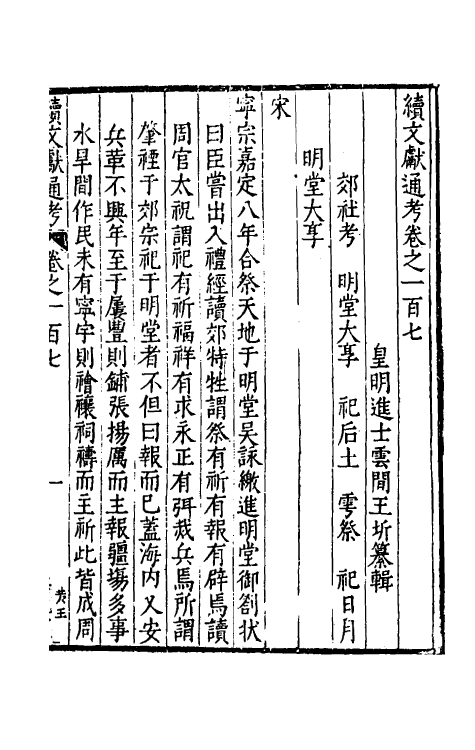 續文獻通考卷之一百七
皇明進士雲間王圻纂輯
郊社考 明堂大享 祀后土 雩祭 祀日月
明堂大享
宋
寧宗嘉定八年合祭天地于明堂吴詠繳進明堂御劄狀
曰臣嘗出入禮經讀郊特牲謂祭有祈有報有辟焉讀
周官太祝謂祀有祈福祥有求永正有弭烖兵焉所謂
肇禋于郊宗祀于明堂者不但曰報而已蓋海内乂安
兵革不興年至于屢豐則鋪張揚厲而主報疆埸多事
水旱間作民未有寧宇則禬禳祠禱而主祈此皆成周
續文獻通考 卷之一百七 一